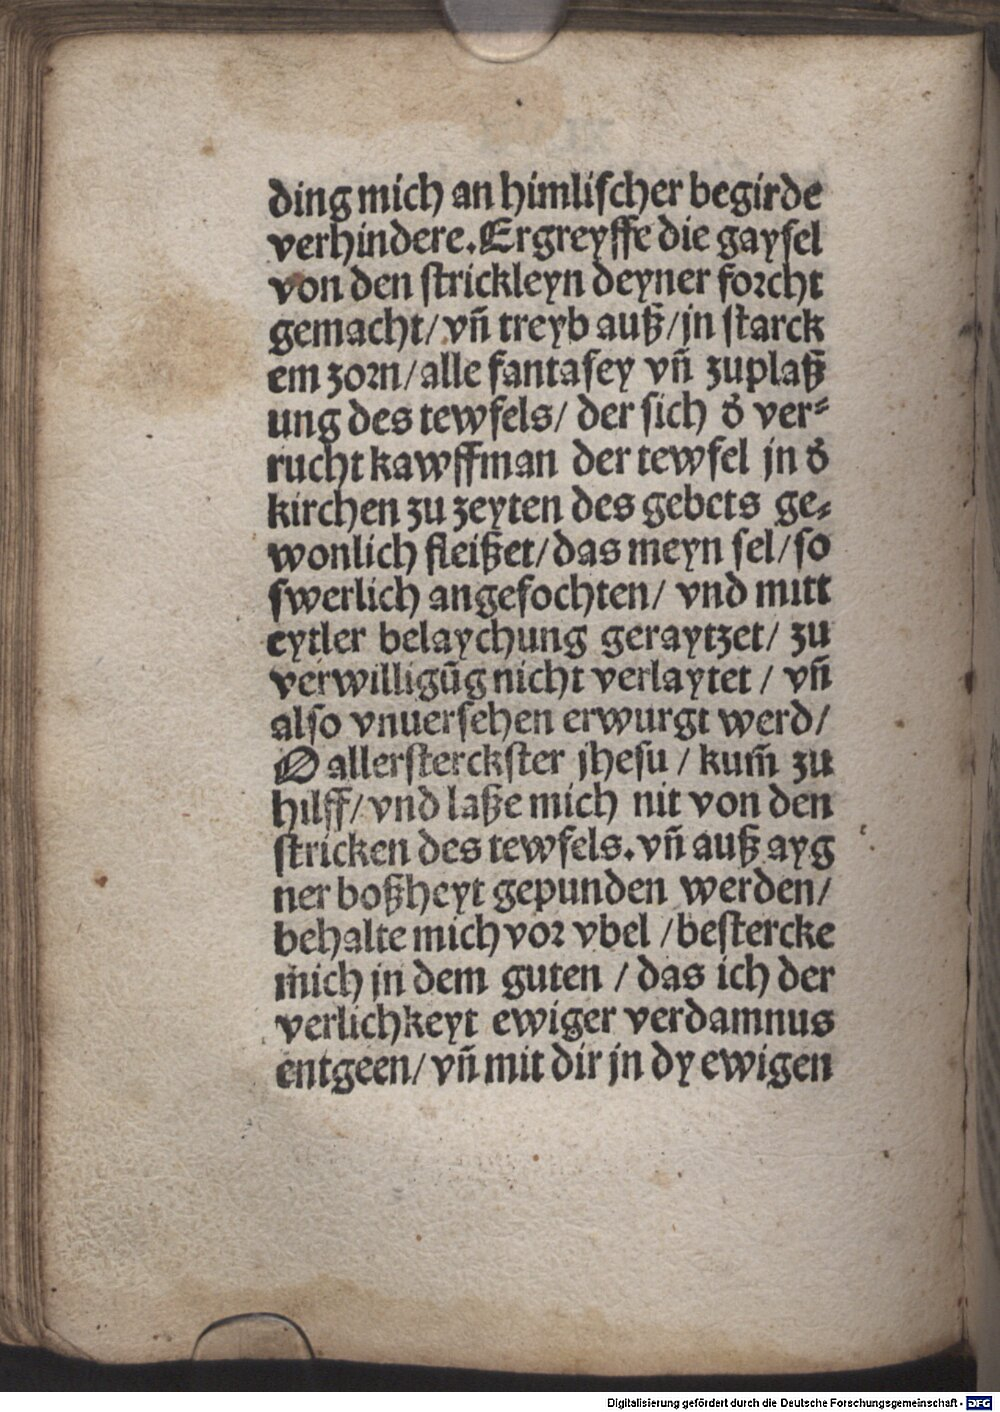 ding mich an himlischer begirde
verhindere. Ergreyffe die gaysel
von den strickleyn deyner forcht
gemacht/ vn̄ treyb auß/ jn starck
em zorn/ alle fantasey vn̄ zuplaß
ung des tewfels/ der sich d̕ ver⸗
rucht kawffman der tewfel jn d̕
kirchen zu zeyten des gebets ge⸗
wonlich fleißet/ das meyn sel/ so
swerlich angefochten/ vnd mitt
eytler belaychung geraytzet/ zu
verwilligūg nicht verlaytet / vn̄
also vnuersehen erwurgt werd/
O allersterckster jhesu / kum̄ zu
hilff/ vnd laße mich nit von den
stricken des tewfels. vn̄ auß ayg
ner boßheyt gepunden werden/
behalte mich vor vbel / bestercke
mich in dem guten / das ich der
verlichkeyt ewiger verdamnus
entgeen/ vn̄ mit dir jn dy ewigen
Digitalisierung gefördert durch die Deutsche Forschungsgemeinschaft - DFG